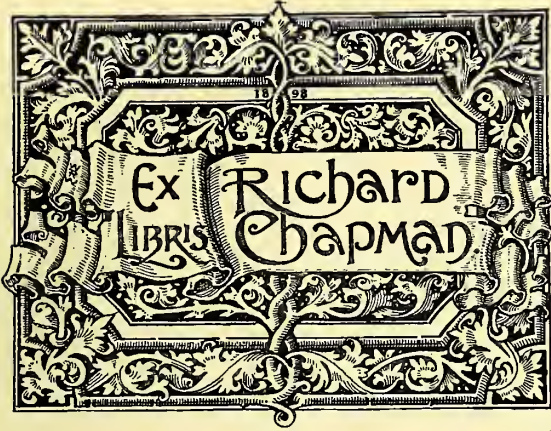 1898
Ex Libris
Richard Chapman